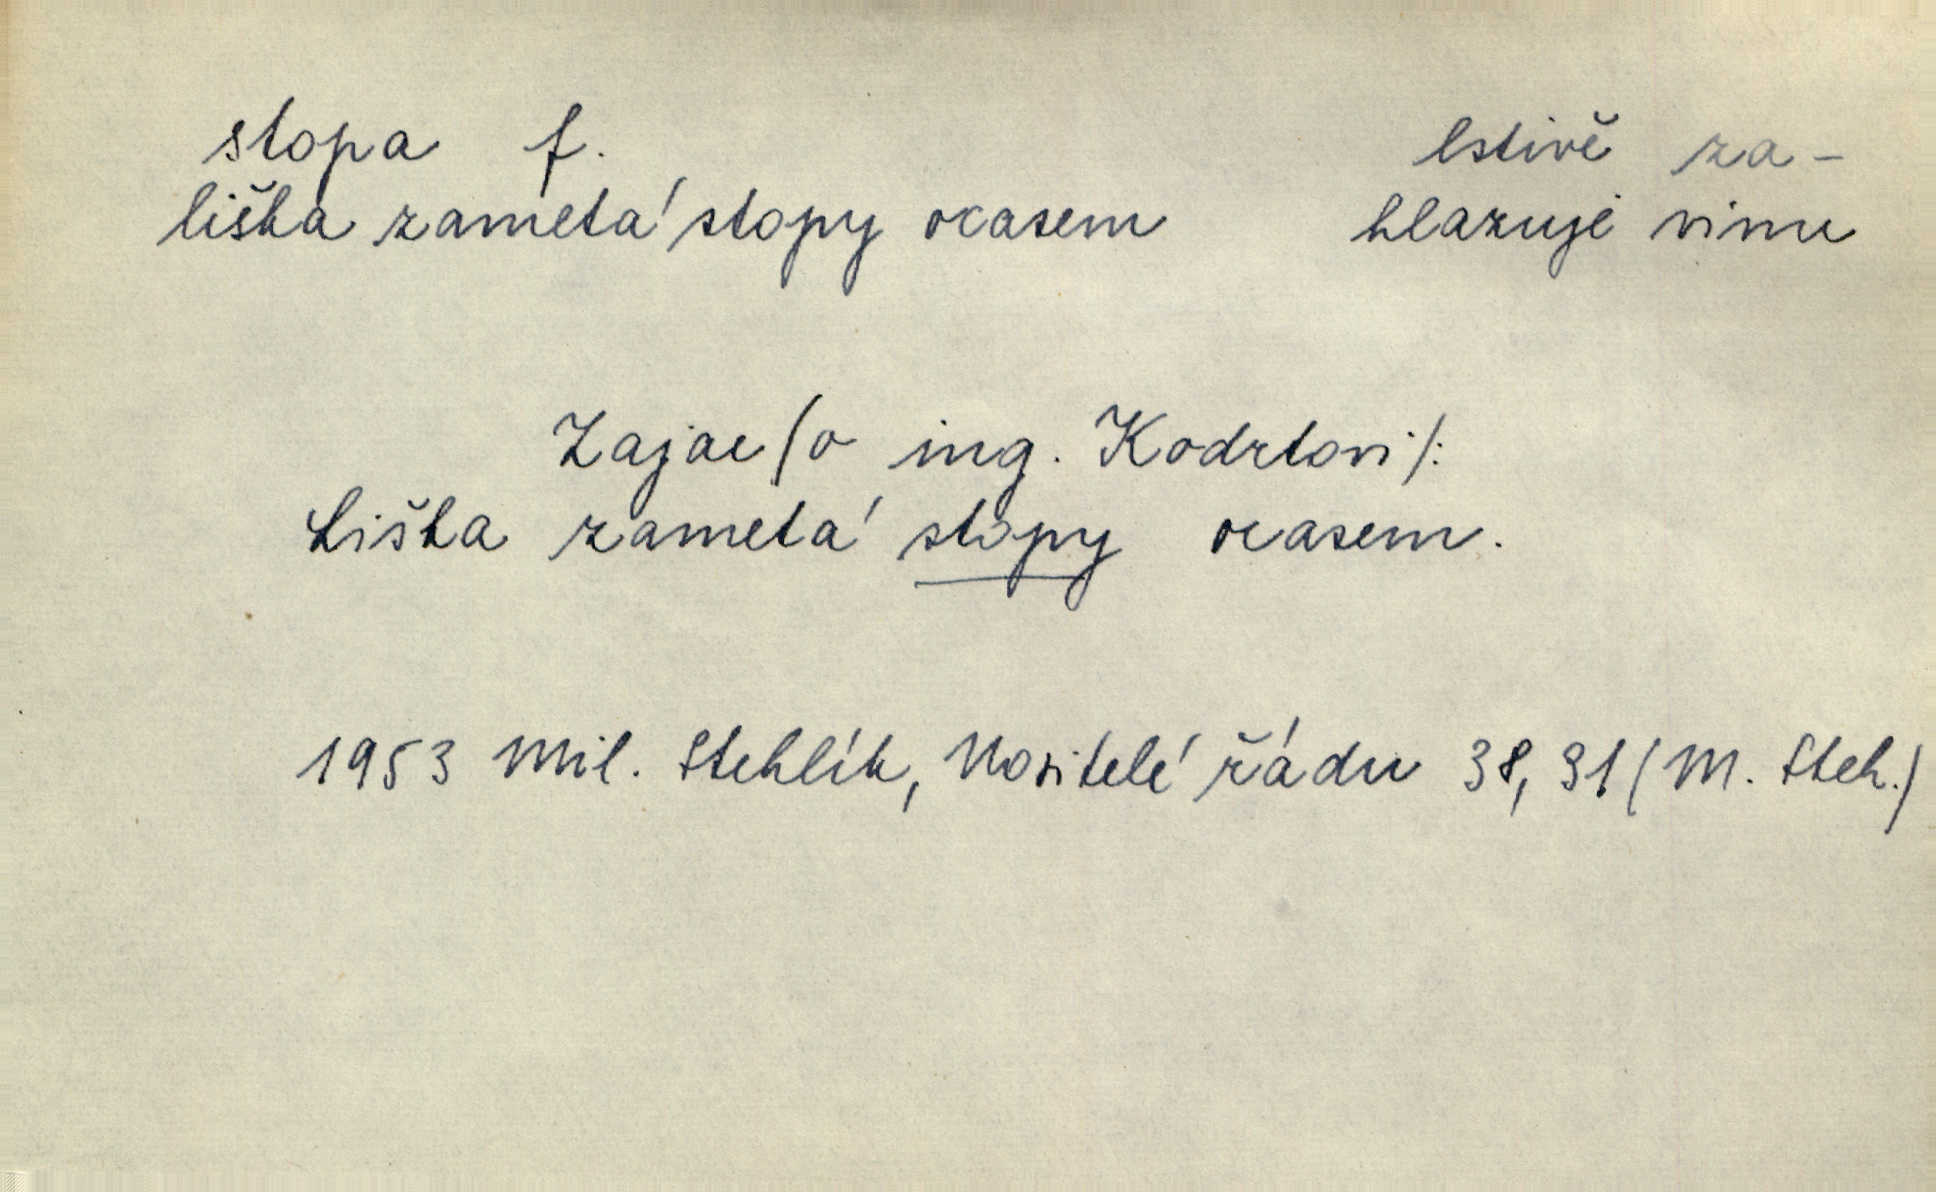 stopa f.
liška zametá stopy ocasem
lstivě za-
hlazuje vinu
Zajac/o ing. Kodrtovi/:
Liška zametá stopy ocasem.
1953 Mil. Stehlík, Nositelé řádu 38, 31 (M. Steh.)